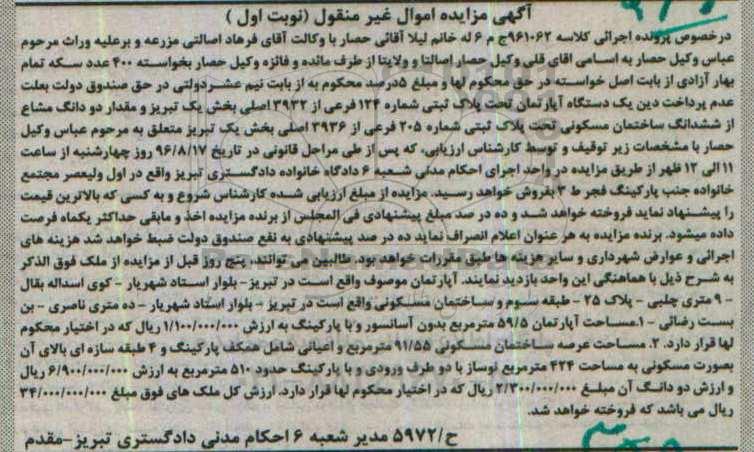 آگهی مزایده اموال غیر منقول (نوبت اول )
درخصوص پرونده اجرائی کلاسه ۹۶۱۰۶۲ج م ۶ له خانم لیلا آقائی حصار با وکالت آقای فرهاد اصالتی مزرعه و برعلیه وراث مرحوم
عباس وکیل حصار به اسامی اقای قلی وکیل حصار اصالتا و ولایتا از طرف مائده و فائزه وکیل حصار بخواسته ۴۰۰ عدد سکه تمام
بهار آزادی از بابت اصل خواسته در حق محکوم لها و مبلغ ۵درصد محکوم به از بابت نیم عشر دولتی در حق صندوق دولت بعلت
عدم پرداخت دین یک دستگاه آپارتمان تحت پلاک ثبتی شماره ۱۲۴ فرعی از ۳۹۳۲ اصلی بخش یک تبریز و مقدار دو دانگ مشاع
از ششدانگ ساختمان مسکونی تحت پلاک ثبتی شماره ۲۰۵ فرعی از ۳۹۳۶ اصلی بخش یک تبریز متعلق به مرحوم عباس وکیل
حصار با مشخصات زیر توقیف و توسط کارشناس ارزیابی، که پس از طی مراحل قانونی در تاریخ ۹۶/۸/۱۷ روز چهارشنبه از ساعت
۱۱ الی ۱۲ ظهر از طریق مزایده در واحد اجرای احکام مدنی شعبه ۶ دادگاه خانواده دادگستری تبریز واقع در اول ولیعصر مجتمع
خانواده جنب پارکینگ فجر ط ۳ بفروش خواهد رسید. مزایده از مبلغ ارزیابی شده کارشناس شروع و به کسی که بالاترین قیمت
را پیشنهاد نماید فروخته خواهد شد و ده در صد مبلغ پیشنهادی فی المجلس از برنده مزایده اخذ و مابقی حداکثر یکماه فرصت
داده میشود. برنده مزایده به هر عنوان اعلام انصراف نماید ده در صد پیشنهادی به نفع صندوق دولت ضبط خواهد شد هزینه های
اجرائی و عوارض شهرداری و سایر هزینه ها طبق مقررات خواهد بود. طالبین می توانند، پنج روز قبل از مزایده از ملک فوق الذکر
به شرح ذیل با هماهنگی این واحد بازدید نمایند. آپارتمان موصوف واقع است در تبریز- بلوار استاد شهریار - کوی اسداله بقال
- ۹ متری چلبی - پلاک ۲۵ - طبقه سوم و ساختمان مسکونی واقع است در تبریز - بلوار استاد شهریار - ده متری ناصری - بن
بست رضائی - ۱.مساحت آپارتمان ۵۹/۵ مترمربع بدون آسانسور و با پارکینگ به ارزش ۱/۱۰۰/۰۰۰/۰۰۰ ریال که در اختیار محکوم
لها قرار دارد. ۲. مساحت عرصه ساختمان مسکونی ۹۱/۵۵ مترمربع و اعیانی شامل همکف پارکینگ و ۴ طبقه سازه ای بالای آن
بصورت مسکونی به مساحت ۴۲۴ مترمربع نوساز با دو طرف ورودی و با پارکینگ حدود ۵۱۰ مترمربع به ارزش ۶/۹۰۰/۰۰۰/۰۰۰ ریال
و ارزش دو دانگ آن مبلغ ۲/۳۰۰/۰۰۰/۰۰۰ ریال که در اختیار محکوم لها قرار دارد. ارزش کل ملک های فوق مبلغ ۳۴/۰۰۰/۰۰۰/۰۰۰
ریال می باشد که فروخته خواهد شد.
ح/۵۹۷۲ مدیر شعبه ۶ احکام مدنی دادگستری تبریز-مقدم